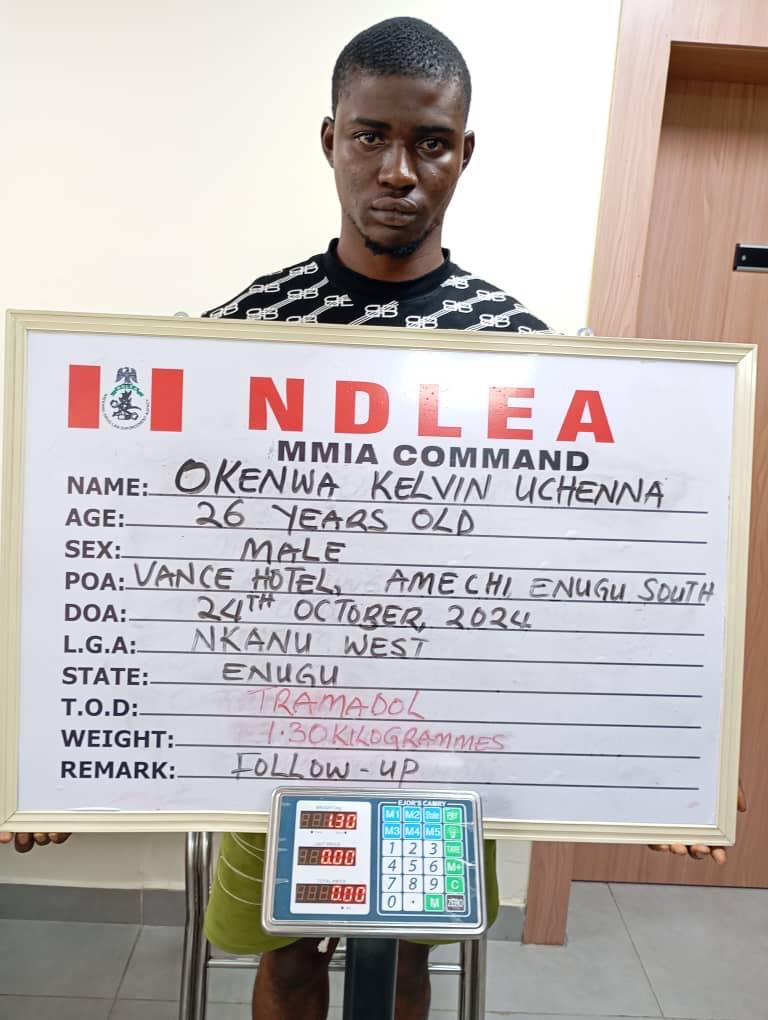 NDLEA
MMIA COMMAND
NAME: OKENWA KELVIN UCHENNA
AGE: 26 YEARS OLD
SEX: MALE
POA: VANCE HOTEL, AMECHI, ENUGU SOUTH
DOA: 24TH OCTOBER, 2024
L.G.A: NKANU WEST
STATE: ENUGU
T.O.D: TRAMADOL
WEIGHT: 1.30KILOGRAMMES
REMARK: FOLLOW-UP
EJOR'S CAMRY
1.30
0.00
0.00
M1 M2
M3 M4 M5
1 2 3 TARE
4 5 6 M+
7 8 9 C
0 . M ZERO